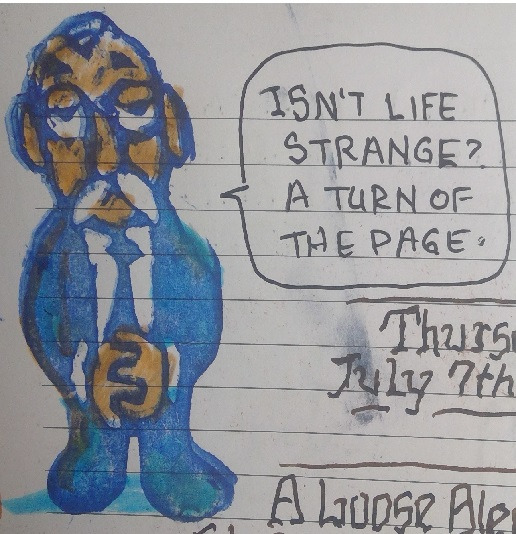 ISN'T LIFE
STRANGE?
A TURN OF
THE PAGE.
Thurs
July 7th
A Loose